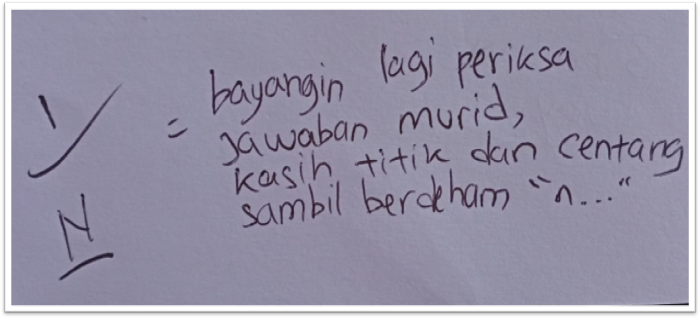 ン = bayangin lagi periksa
jawaban murid,
kasih titik dan centang
N sambil berdeham "n..."